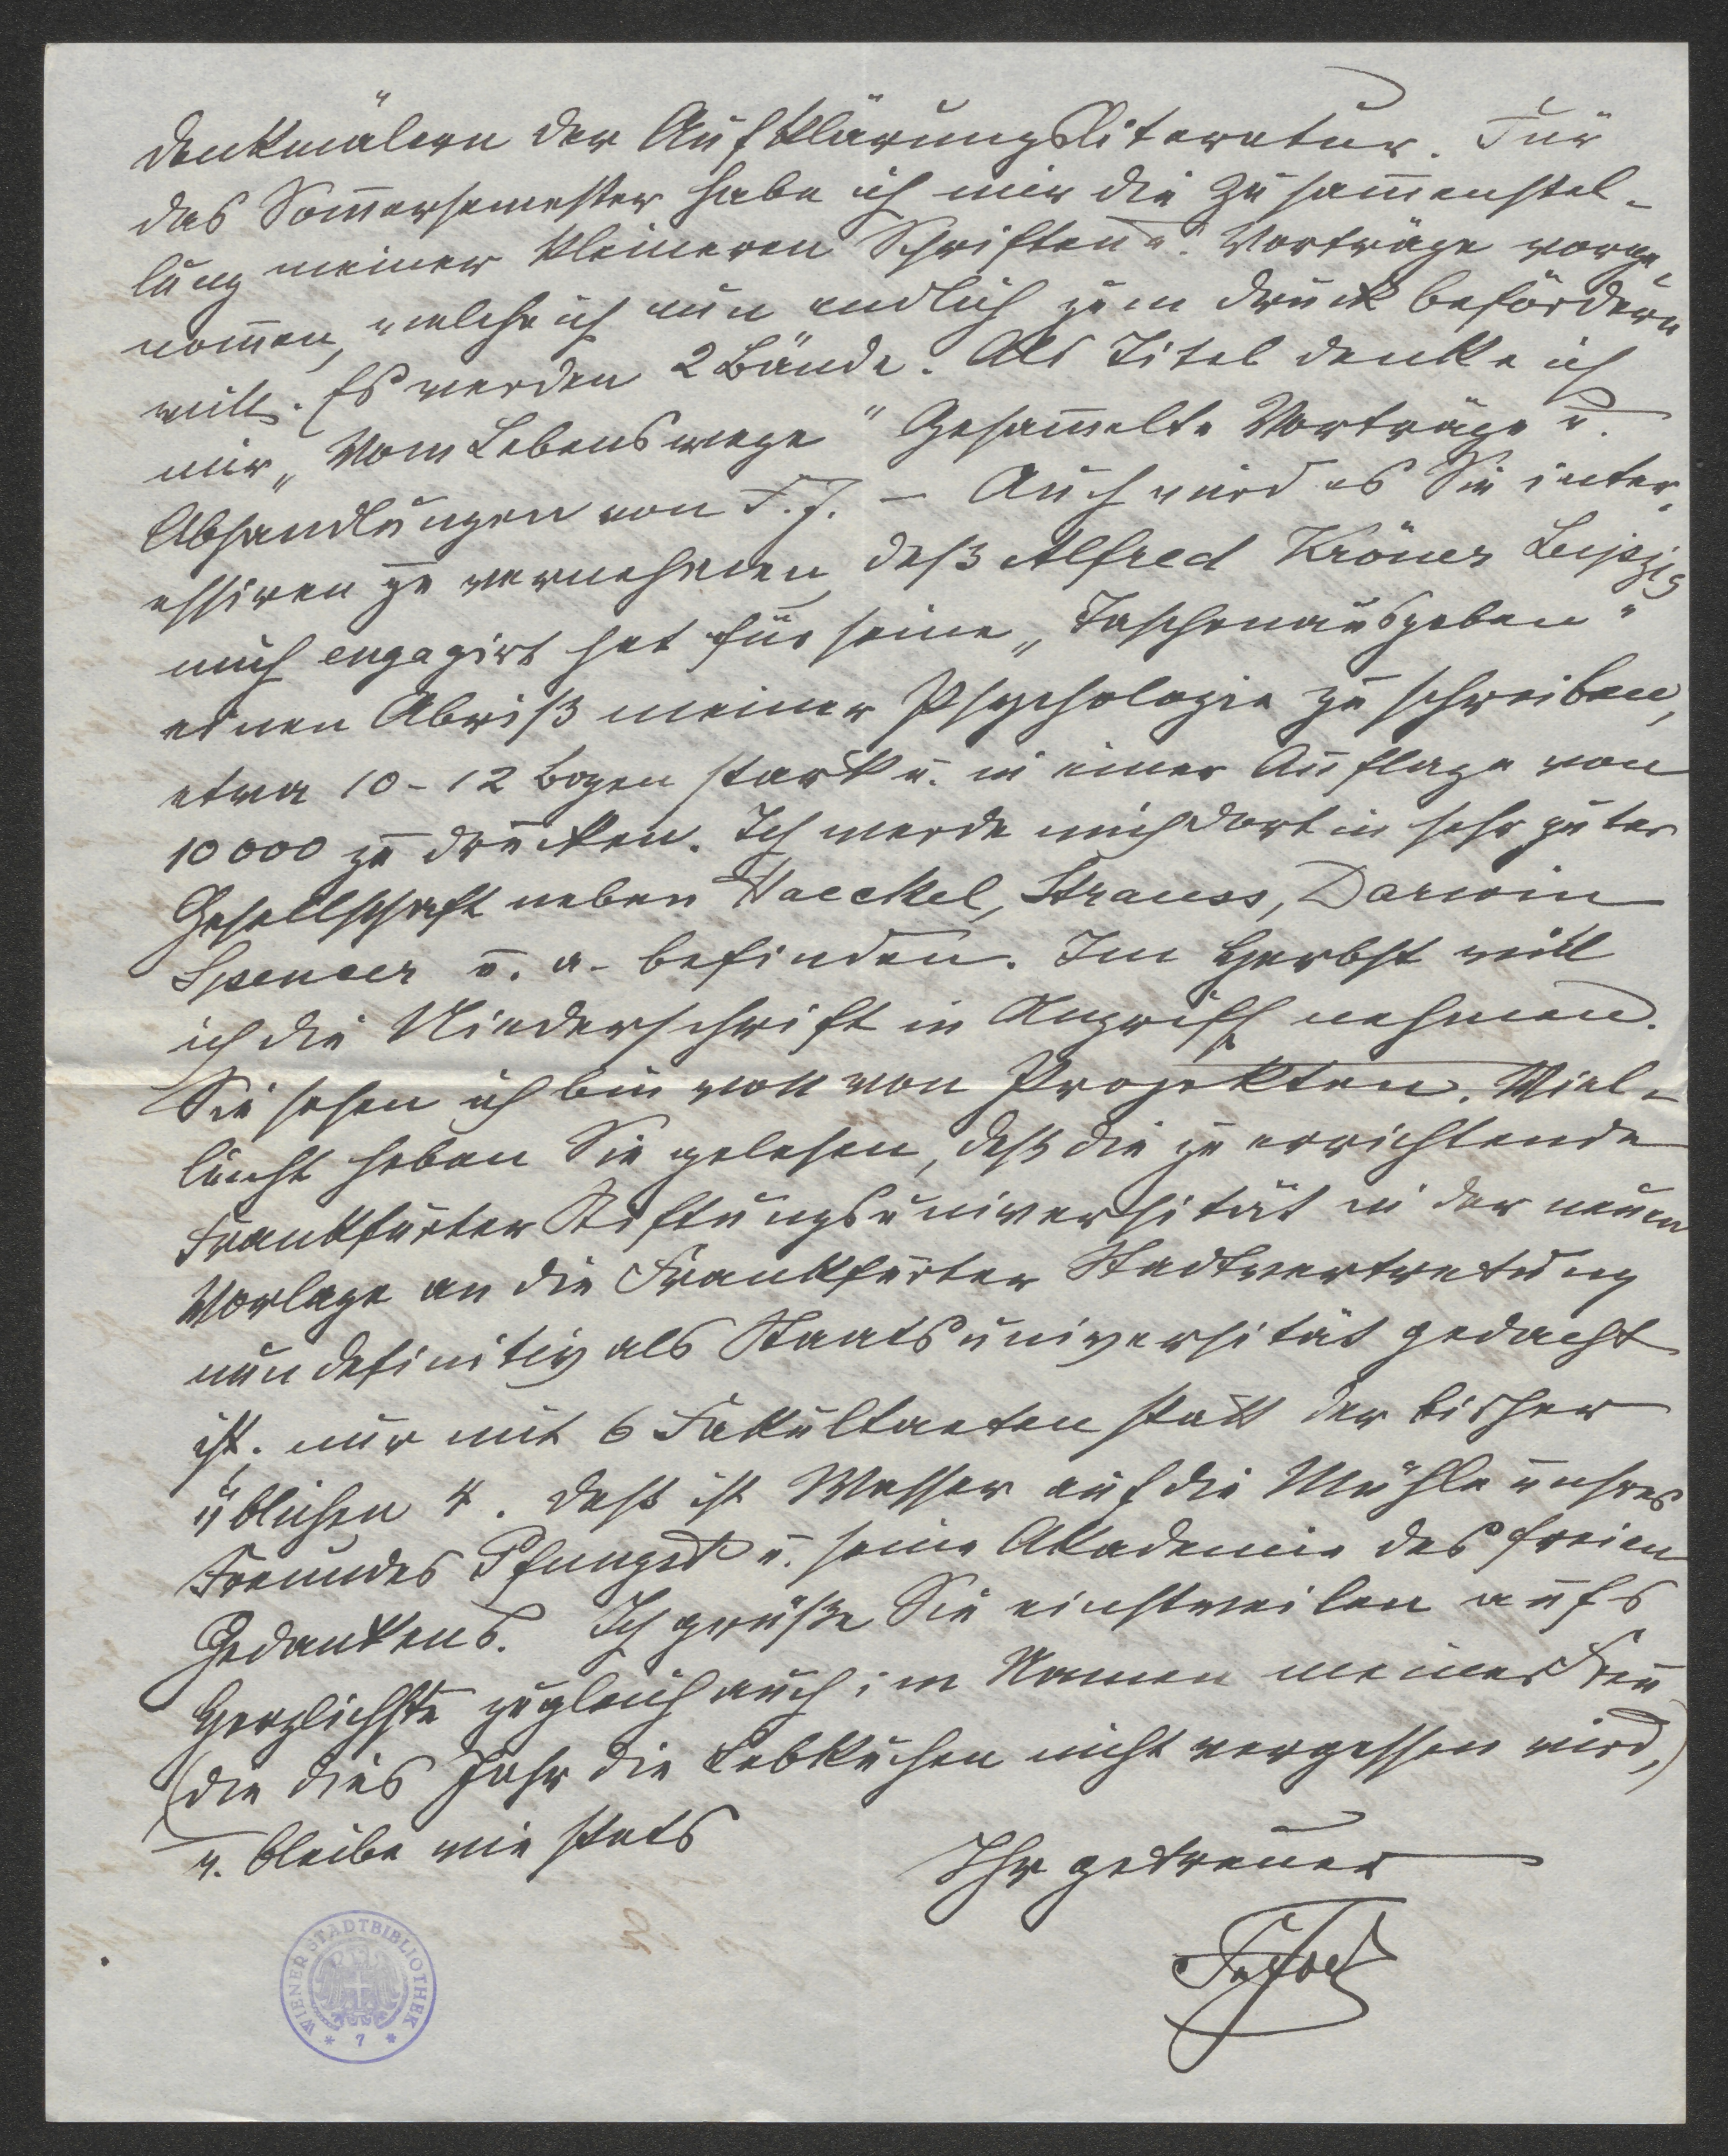 Denkmälern der Aufklärungsliteratur. Für
das Som̅ersemester habe ich mir die Zusam̅enstel-
lung meiner kleineren Schriften u. Vorträge vorge-
nom̅en, welche ich nun endlich zum Druck befördern
will. Es werden 2 Bände. Als Titel denke ich
mir „Vom Lebenswege“ Gesam̅elte Vorträge u.
Abhandlungen von F. J. – Auch wird es Sie inter-
essiren zu vernehmen, daß Alfred Kröner Leipzig
mich engagirt hat für seine „Taschenausgaben“
einen Abriß meiner Psychologie zu schreiben,
etwa 10-12 Bogen stark u. in einer Auflage von
10000 zu drucken. Ich werde mich dort in sehr guter
Gesellschaft neben Haeckel, Strauss, Darwin
Spencer u. a. befinden. Im Herbst will
ich die Niederschrift in Angriff nehmen.
Sie sehen ich bin voll von Projekten. Viel-
leicht haben Sie gelesen, daß die zu errichtende
Frankfurter Stiftungsuniversität in der neuen
Vorlage an die Frankfurter Stadtvertretung
nun definitiv als Staatsuniversität gedacht
ist; nur mit 6 Fakultaeten statt der bisher
üblichen 4. Daß ist Wasser auf die Mühle unsres
Freundes Pfungst u. seine Akademie des freien
Gedankens. Ich grüße Sie einstweilen aufs
Herzlichste zugleich auch im Namen meiner Frau
(die dies Jahr die Lebkuchen nicht vergessen wird,)
u. bleibe wie stets
Ihr getreuer
FrJodl
WIENER STADTBIBLIOTHEK
* 7 *